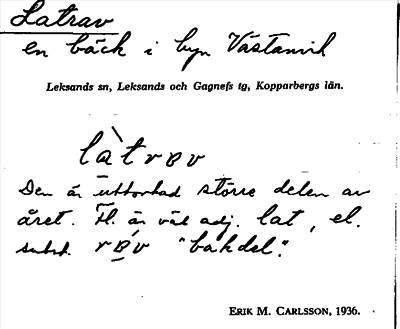 Latrav
en bäck i byn Västanvik
Leksands sn, Leksands och Gagnefs tg, Kopparbergs län.
làtrøv
Den är uttorkad större delen av
året. Fl. är väl adj. lat, el.
subst. røv "bakdel".
ERIK M. CARLSSON, 1936.